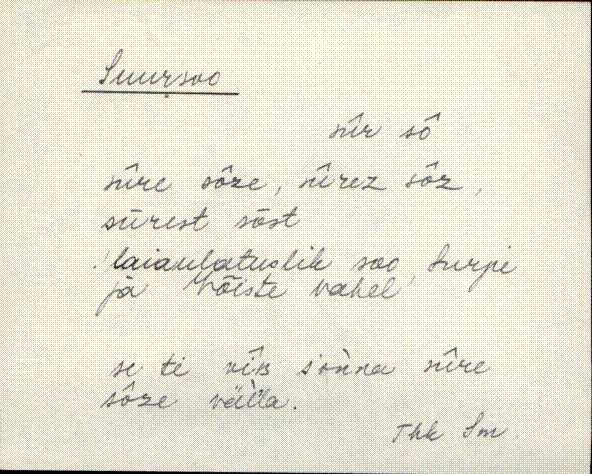 Suursoo
sūr sō
sūre sōze, sūrez sōz,
sūrest sōst
laiaulatuslik soo, Surpi
ja Võiste vahel
se ti sinna sūre
sōze
Thk Sm.